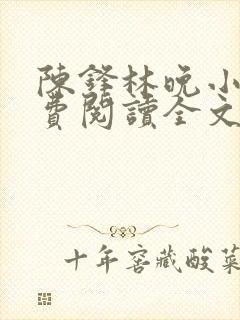 陳鋒林晚小
費閱讀全文
十年窖藏酸菜